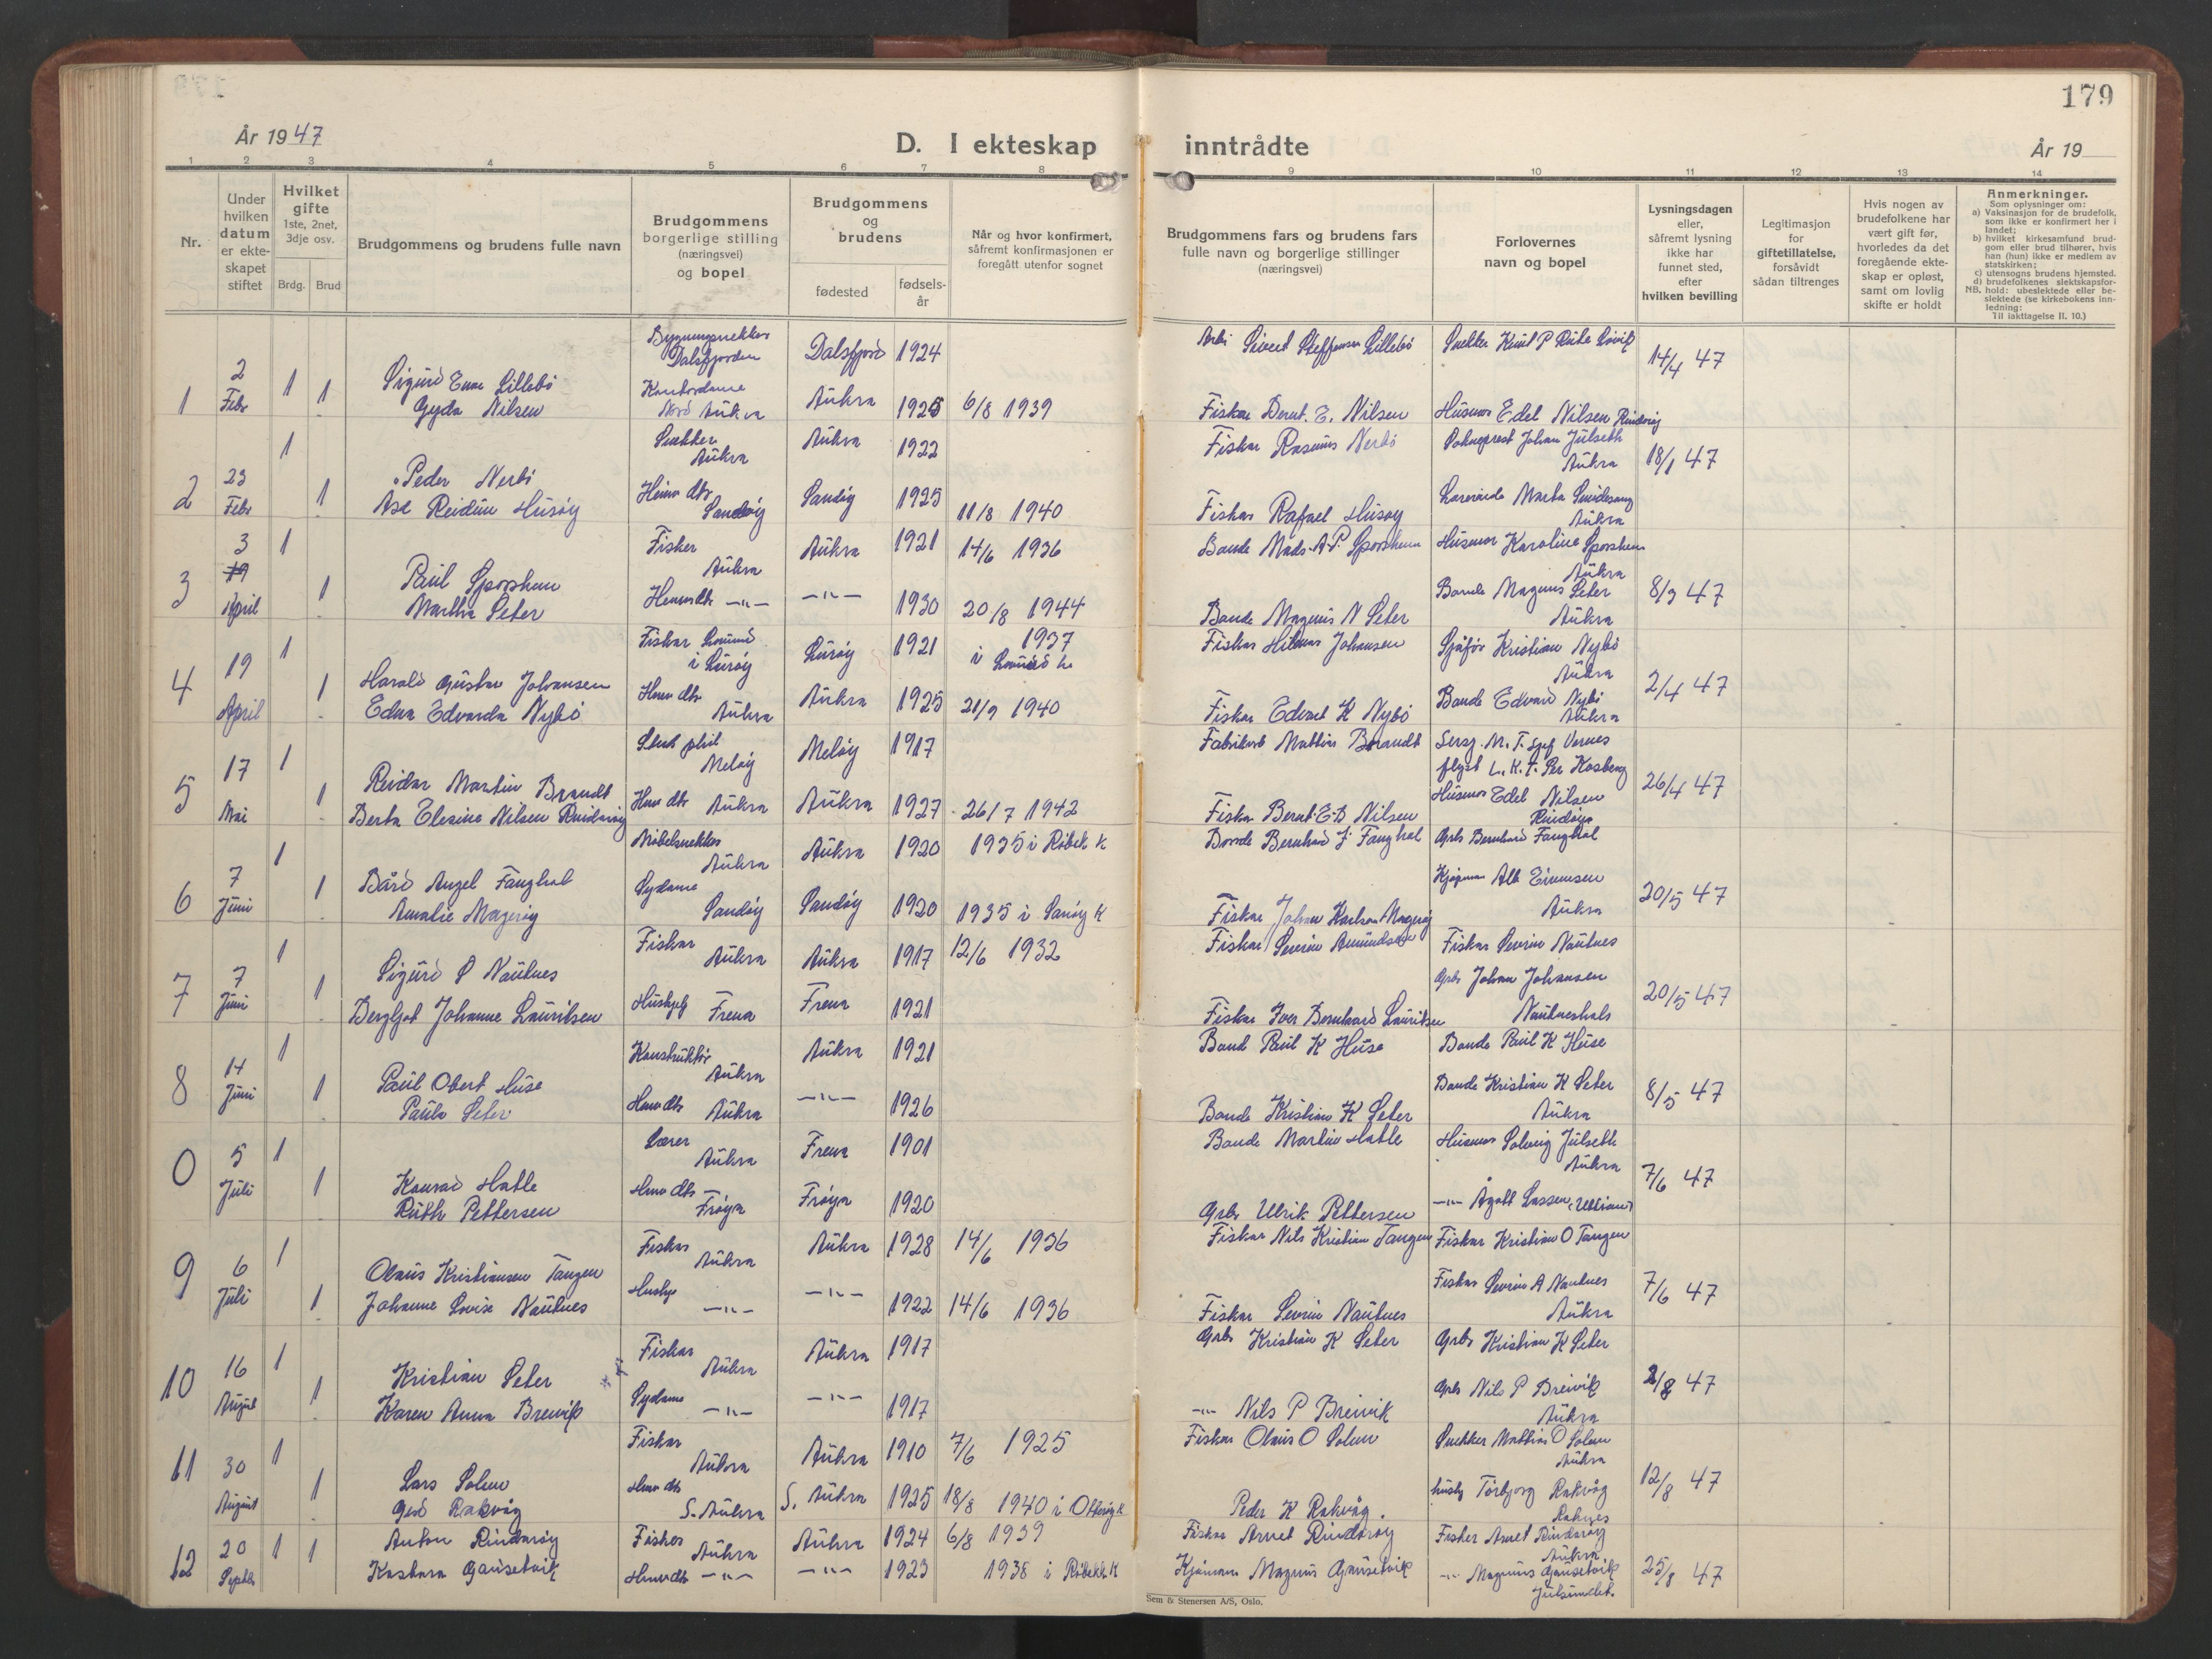 179
År 1947
D. I ekteskap inntrådte
År 19
1 2 3 4 5 6 7 8 9 10 11 12 13 14
Nr.
Under hvilken datum er ekteskapet stiftet
Hvilket gifte 1ste, 2net, 3dje osv.
Brdg. Brud
Brudgommens og brudens fulle navn
Brudgommens borgerlige stilling (næringsvei) og bopel
Brudgommens og brudens
fødested
fødselsår
Når og hvor konfirmert, såfremt konfirmasjonen er foregått utenfor sognet
Brudgommens fars og brudens fars fulle navn og borgerlige stillinger (næringsvei)
Forlovernes navn og bopel
Lysningsdagen eller, såfremt lysning ikke har funnet sted, efter hvilken bevilling
Legitimasjon for giftetillatelse, forsåvidt sådan tiltrenges
Hvis nogen av brudefolkene har vært gift før, hvorledes da det foregående ekteskap er opløst, samt om lovlig skifte er holdt
Anmerkninger.
Som oplysninger om:
a) Vaksinasjon for de brudefolk, som ikke er konfirmert her i landet;
b) hvilket kirkesamfund brudgom eller brud tilhører, hvis han (hun) ikke er medlem av statskirken;
c) utensogns brudens hjemsted.
d) brudefolkenes slektskapsforhold: ubeslektede eller beslektede (se kirkebokens innledning:
NB. Til iakttagelse II. 10.)
Dalsfjorden Dalsfjord 1924 Arbi Sivert Steffensen Lillebö 14/4 47
1 2 Febr 1 1 Sigurd Enar Lillebö
Gyda Nilsen Nord Aukra Aukra 1925 6/8 1939 Fisker Bernt. E. Nilsen Husmor Edel Nilsen Rindaröy
1 Snekker Aukra Aukra 1922 Fisker Rasmus Nerbö Sokneprest Johan Julseth Aukra 18/1 47
2 23 Febr 1 Peder Nerbö
Ase Reidun Husöy Heimv dtr Sandöy Sandöy 1925 11/8 1940 Fisker Rafael Husöy Marta Aukra
3 3 April 1 Fisker Aukra Aukra 1921 14/6 1936 Bonde Mads. A. P. Sporsheim Husmor Karoline Sporsheim Aukra
1 Paul Sporsheim
Martha Seter Heimv dtr -"- -"- 1930 20/8 1944 Bonde Magnus N Seter Bonde Magnus Seter Aukra 8/3 47
4 19 April 1 Fisker Lovund i Luröy Luröy 1921 1937 i Lovund k Fisker Hilmar Johansen Sjåför Kristian Nybö Aukra
1 Harald Gustav Johansen
Edna Edvarda Nybö Heimv dtr Aukra Aukra 1925 21/9 1940 Fisker Edvart K Nybö Bonde Edvard Nybö Aukra 2/4 47
5 17 Mai 1 Stud phil Melöy Melöy 1917 Fabrikarb Mattias Brandt Sersj. M. T. Sjef Vernes flyst L. K. T. Per Kosberg
1 Reidar Martin Brandt
Berta Elesine Nilsen Rindaröy Heimv dtr Aukra Aukra 1927 26/7 1942 Fisker Bernt. E. B Nilsen Husmor Edel Nilsen Rindaröy 26/4 47
6 7 Juni 1 Möbelsnekker Aukra Aukra 1920 1935 i Röbek k Bonde Bernhard J Fanghol Grbr Bernhard Fanghol
1 Bård Angel Fanghol
Amalie Mageröy Sydame Sandöy Sandöy 1920 1935 i Sanöy K Fisker Johan Karlsen Mageröy Kjöpman Alb Eimmsen Aukra 20/5 47
7 7 Juni 1 Fisker Aukra Aukra 1917 12/6 1932 Fisker Severin Amundsen Fisker Severin Nautnes
1 Sigurd S Nautnes
Bergljot Johanne Lauritsen Hushjelp Frena Frena 1921 Fisker Iver Bernhard Lauritsen Grbr Johan Johansen Nautneshals 20/5 47
8 14 Juni 1 Konstruktör Aukra Aukra 1921 Bond Paul K Huse Bonde Paul K Huse
1 Paul Obert Huse
Paula Seter Heimv dtr Aukra -"- 1926 Bonde Kristian K Seter Bonde Kristian K Seter Aukra 8/5 47
0 5 Juli 1 Lærer Aukra Frena 1901 Bonde Martin Hatle Husmor Solveig Julseth Aukra
1 Konrad Hatle
Ruth Pettersen Heimv dtr Fröya Fröya 1920 Grbr Ulrik Pettersen -"- Ågott Lassen 7/6 47
9 6 Juli 1 Fisker Aukra Aukra 1928 14/6 1936 Fisker Nils Kristian Tangen Fisker Kristian O Tangen
1 Olaus Kristiansen Tangen
Johanne Lovise Nautnes Hushje -"- -"- 1922 14/6 1936 Fisker Severin Nautnes Fisker Severin A Nautnes Aukra 7/6 47
10 16 August 1 Fisker Aukra Aukra 1917 Grbr Kristian K Seter Grbr Kristian K Seter
1 Kristian Seter
Karen Anna Breivik Sydame -"- -"- 1917 -"- Nils P Breivik Grbr Nils P Breivik Aukra 2/8 47
11 30 August 1 Fisker Aukra Aukra 1910 7/6 1925 Fisker Olaus O Solem Snekker Mattias O Solem Aukra
1 Lars Solem
Gud Rakvåg Heimv dtr S. Aukra S. Aukra 1925 18/8 1940 i Otteröy k Peder K Rakvåg. Torbjörg Rakvåg Raknes 12/8 47
12 20 Septbr 1 1 Anton Rindaröy Fisker Aukra Aukra 1924 6/8 1939 Fisker Arnet Rindaröy Fisker Arnet Rindaröy Aukra
Kastara Gausetvik Heimv dtr -"- -"- 1923 1938 i Röbekk K Kjömann Magnus Gausetvik -"- Magnus Gausetvik Julsundet. 25/8 47
Sem & Stenersen A/S, Oslo.